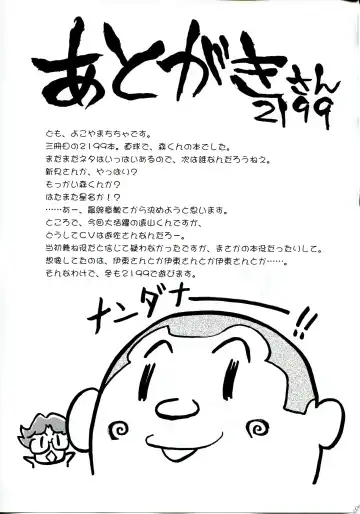 あとがきさん
2199
ども、よこやまちちゃです。
三冊目の2199本。直球で、森くんの本でした。
まだまだネタはいっぱいあるので、次は誰なんだろうねえ。
新見さんか、やっぱり?
もっかい森くんか?
はたまた星名か!?
……あー、龍騎痛敵てから決めようと思います。
ところで、今回大活躍の遠山くんですが、
どうしてCVは遊佐さんなんだろー。
当初兼ね役だと信じて疑わなかったですが、まさかの本役だったりして。
想像してたのは、伊東さんとか伊東さんとか伊東さんとか……。
そんなわけで、冬も2199で遊びます。
ナンダナーー!!